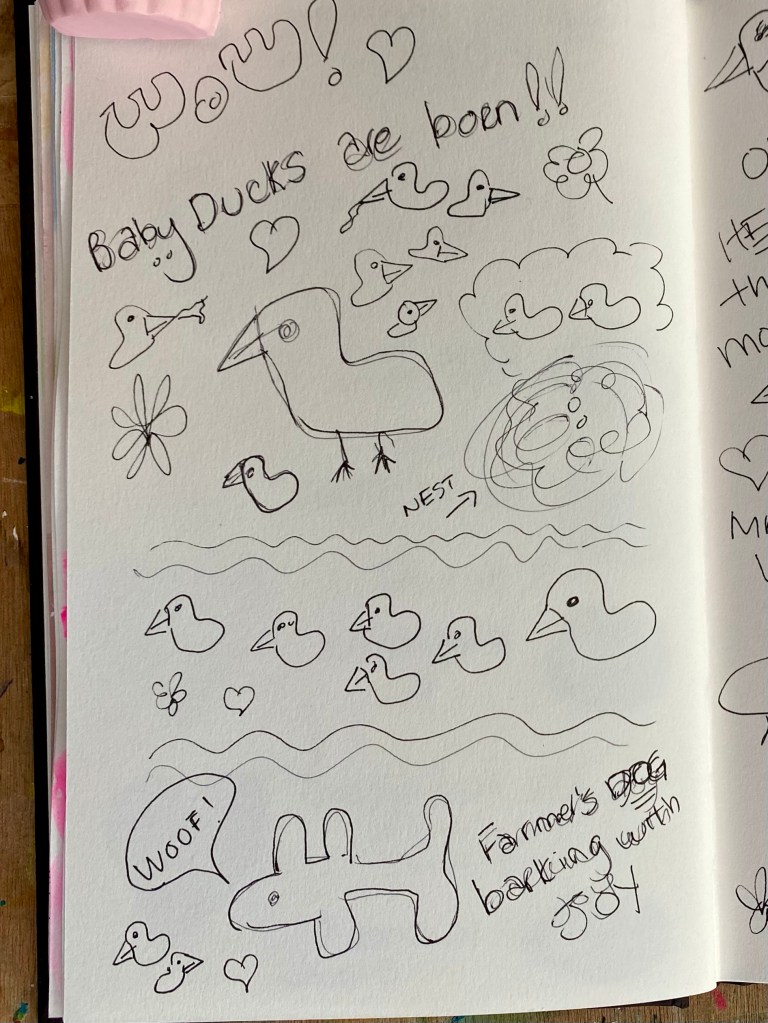 WOW!
Baby Ducks are born!!
NEST
WOOF!
Farmer's DOG
barking with
JOY
HE
th
mo